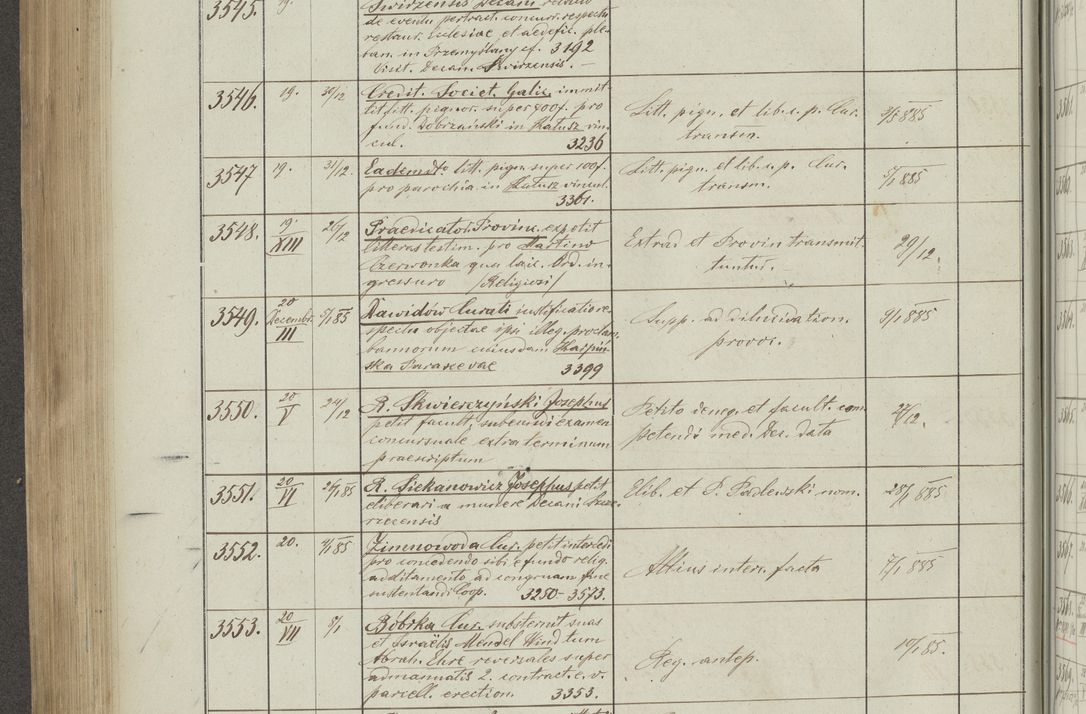 3545. 19. Swirzensis Decani
de eventu pertract. concur. respectu
restaur. Ecclesiae et aedific. ple-
ban. in Przemyślany cf. 3192
Visit. Decan. Swirzensis. —
3546. 19. 30/12 Credit. Societ. Galic. immit-
tit litt. pignor. super 800f. pro
fund. Dobrzański in Kałusz vin-
cul. 3236
Litt. pign. et lib. c. p. Cur.
transm.
885
3547 19. 31/12. Eadem litt. pign. super 100f.
pro parochia in Kałusz vincul.
3361.
Litt. pign. et lib. c. p. Cur.
transm.
5/1 885
3548. 19/XIII 26/12 Praedicator. Provinc. expetit
litteras testim. pro Martino
Czerwonka qua laic. Ord. in-
gressuro /Religiosi/
Extrad et Provin transmit-
tuntur.
29/12.
3549. 20 Decembr. III 5/1 85 Dawidów Curati iustificatio re-
spectu objectae ipsi illeg. proclam.
bannorum cuiusdam Karpiń-
ska Parascevae 3399
Supp. ad dilucidation.
provoc.
9/1 885
3550. 20/V 24/12 R. Skwierczyński Josephus
petit facult. subeundi examen
concursuale extra terminum
praescriptum
Petito deneg. et facult. com-
petendi med. Dec. data
24/12.
3551. 20/VI 26/1 85 R. Siekanowicz Josephus petit
eliberari a munere Decani Szcze-
rzecensis
Elib. et P. Padlewski nom.
28/1 885
3552. 20. 4/1 85 Zimnowoda Cur. petit intercedi
pro concedendo sibi e fundo relig.
additamento ad congruam fine
sustentandi Coop. 3250 – 3573.
Altius interc. facta
7/1 885
3553. 20/VII 8/1 Bóbrka Cur. substernit suas
et Israëlis Mendel Wind tum
Abrah. Ehre reversales super
admanuatis 2. contract. e. v.
parcell. erection. 3353.
Reg. antep.
10/1 85.